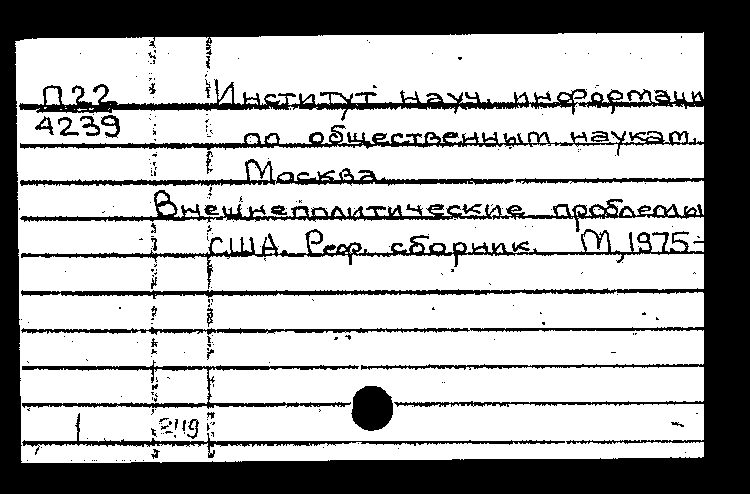 П22 Институт науч. информаци
4239 по общественным наукам.
Москва.
Внешнеполитические проблемы
США. Реф. сборник. М, 1975-
1 2119